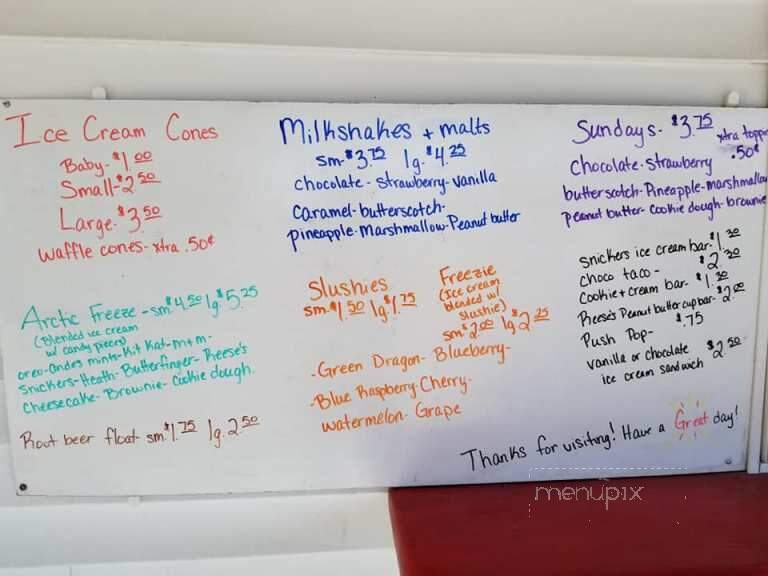 Ice Cream Cones
Baby-$1.00
Small-$2.50
Large-$3.50
waffle cones-xtra .50¢
Arctic Freeze-sm$4.50 lg$5.25
(Blended ice cream
w/ candy pieces)
oreo-andes mints-kit Kat-m+m-
Snickers-Heath-Butterfinger-Reese's
Cheesecake-Brownie-cookie dough.
Root beer float-sm$1.75 lg.2.50
Milkshakes + malts
sm-$3.75 lg-$4.25
chocolate-strawberry-vanilla
Caramel-butterscotch-
pineapple-marshmallow-Peanut butter
Slushies
sm$1.50 lg$1.75
Freezie
(Ice cream
blended w/
slushie)
sm$2.00 lg$2.25
-Green Dragon-Blueberry-
-Blue Raspberry-Cherry-
watermelon-Grape
Sundays-$3.75
xtra toppi
.50¢
Chocolate-Strawberry
butterscotch-Pineapple-marshmallow
peanut butter-cookie dough-brownie
snickers ice cream bar-$1.30
choco taco-$2.30
cookie+cream bar-$1.30
Reese's Peanut butter cup bar-$2.00
Push Pop-$.75
vanilla or chocolate
ice cream sandwich $2.50
Thanks for visiting! Have a Great day!
menupix